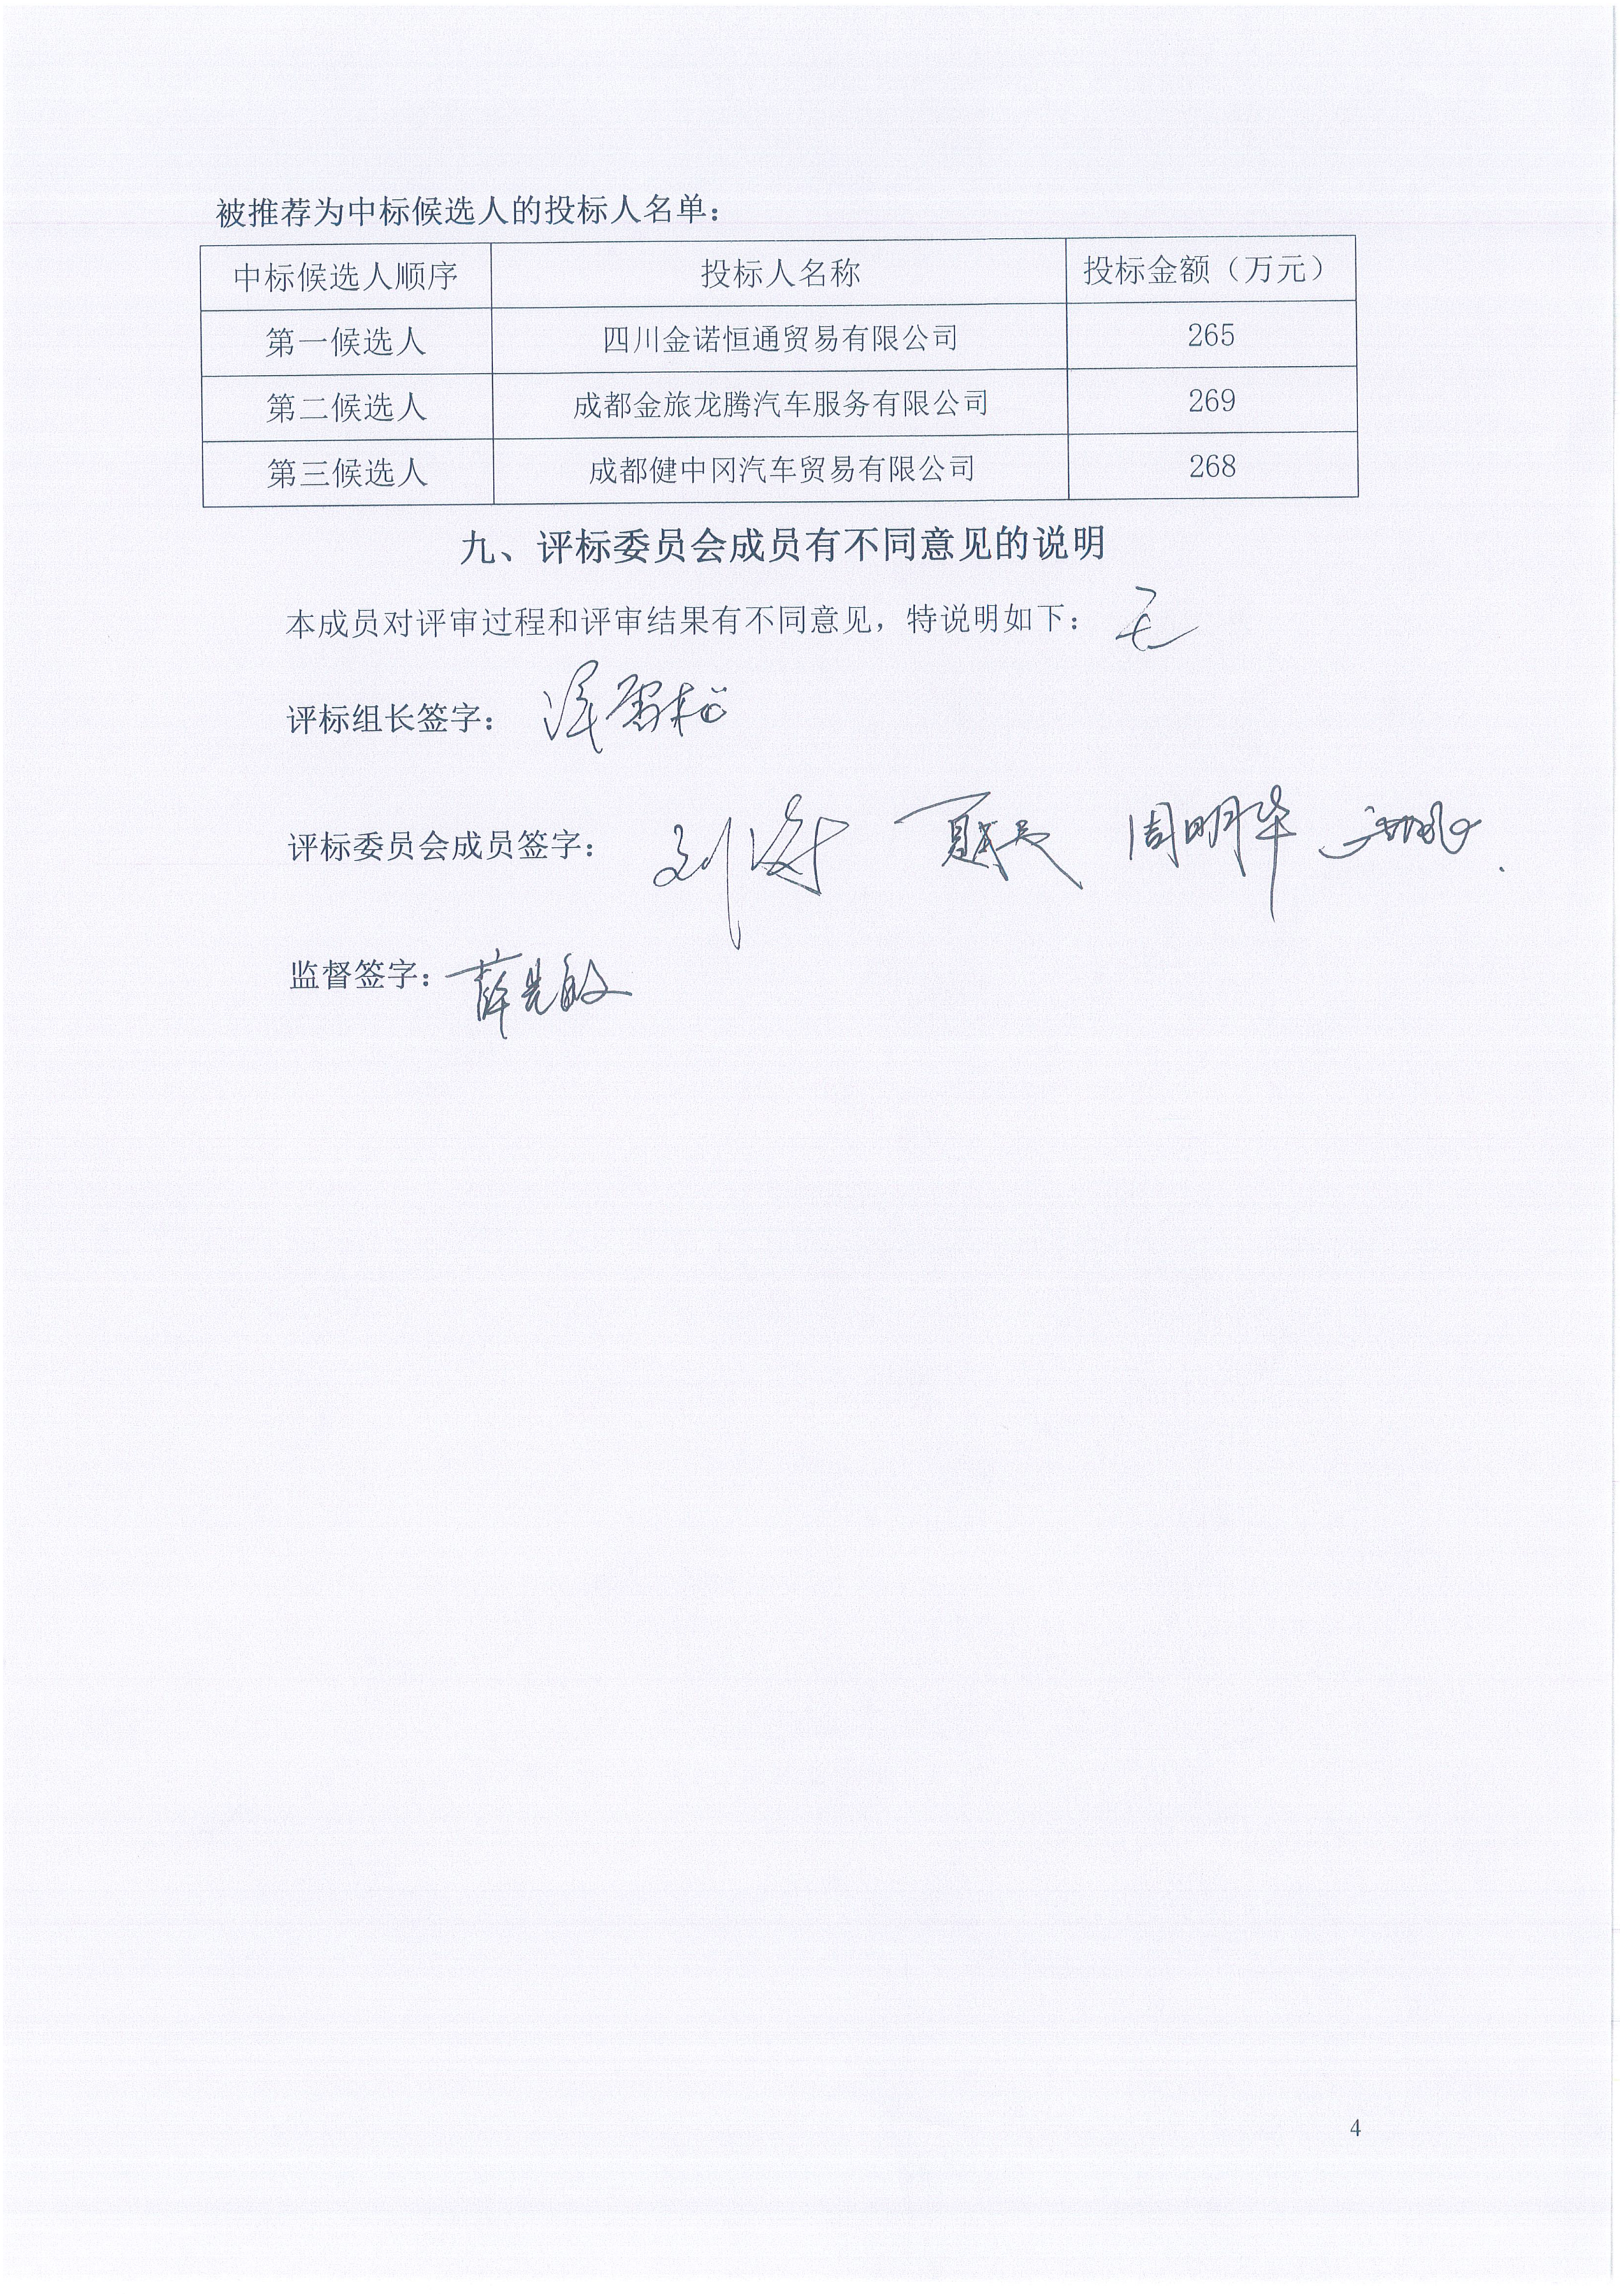 被推荐为中标候选人的投标人名单：
中标候选人顺序 投标人名称 投标金额（万元）
第一候选人 四川金诺恒通贸易有限公司 265
第二候选人 成都金旅龙腾汽车服务有限公司 269
第三候选人 成都健中冈汽车贸易有限公司 268
九、评标委员会成员有不同意见的说明
本成员对评审过程和评审结果有不同意见，特说明如下：无
评标组长签字：
评标委员会成员签字：周明华
监督签字：
4